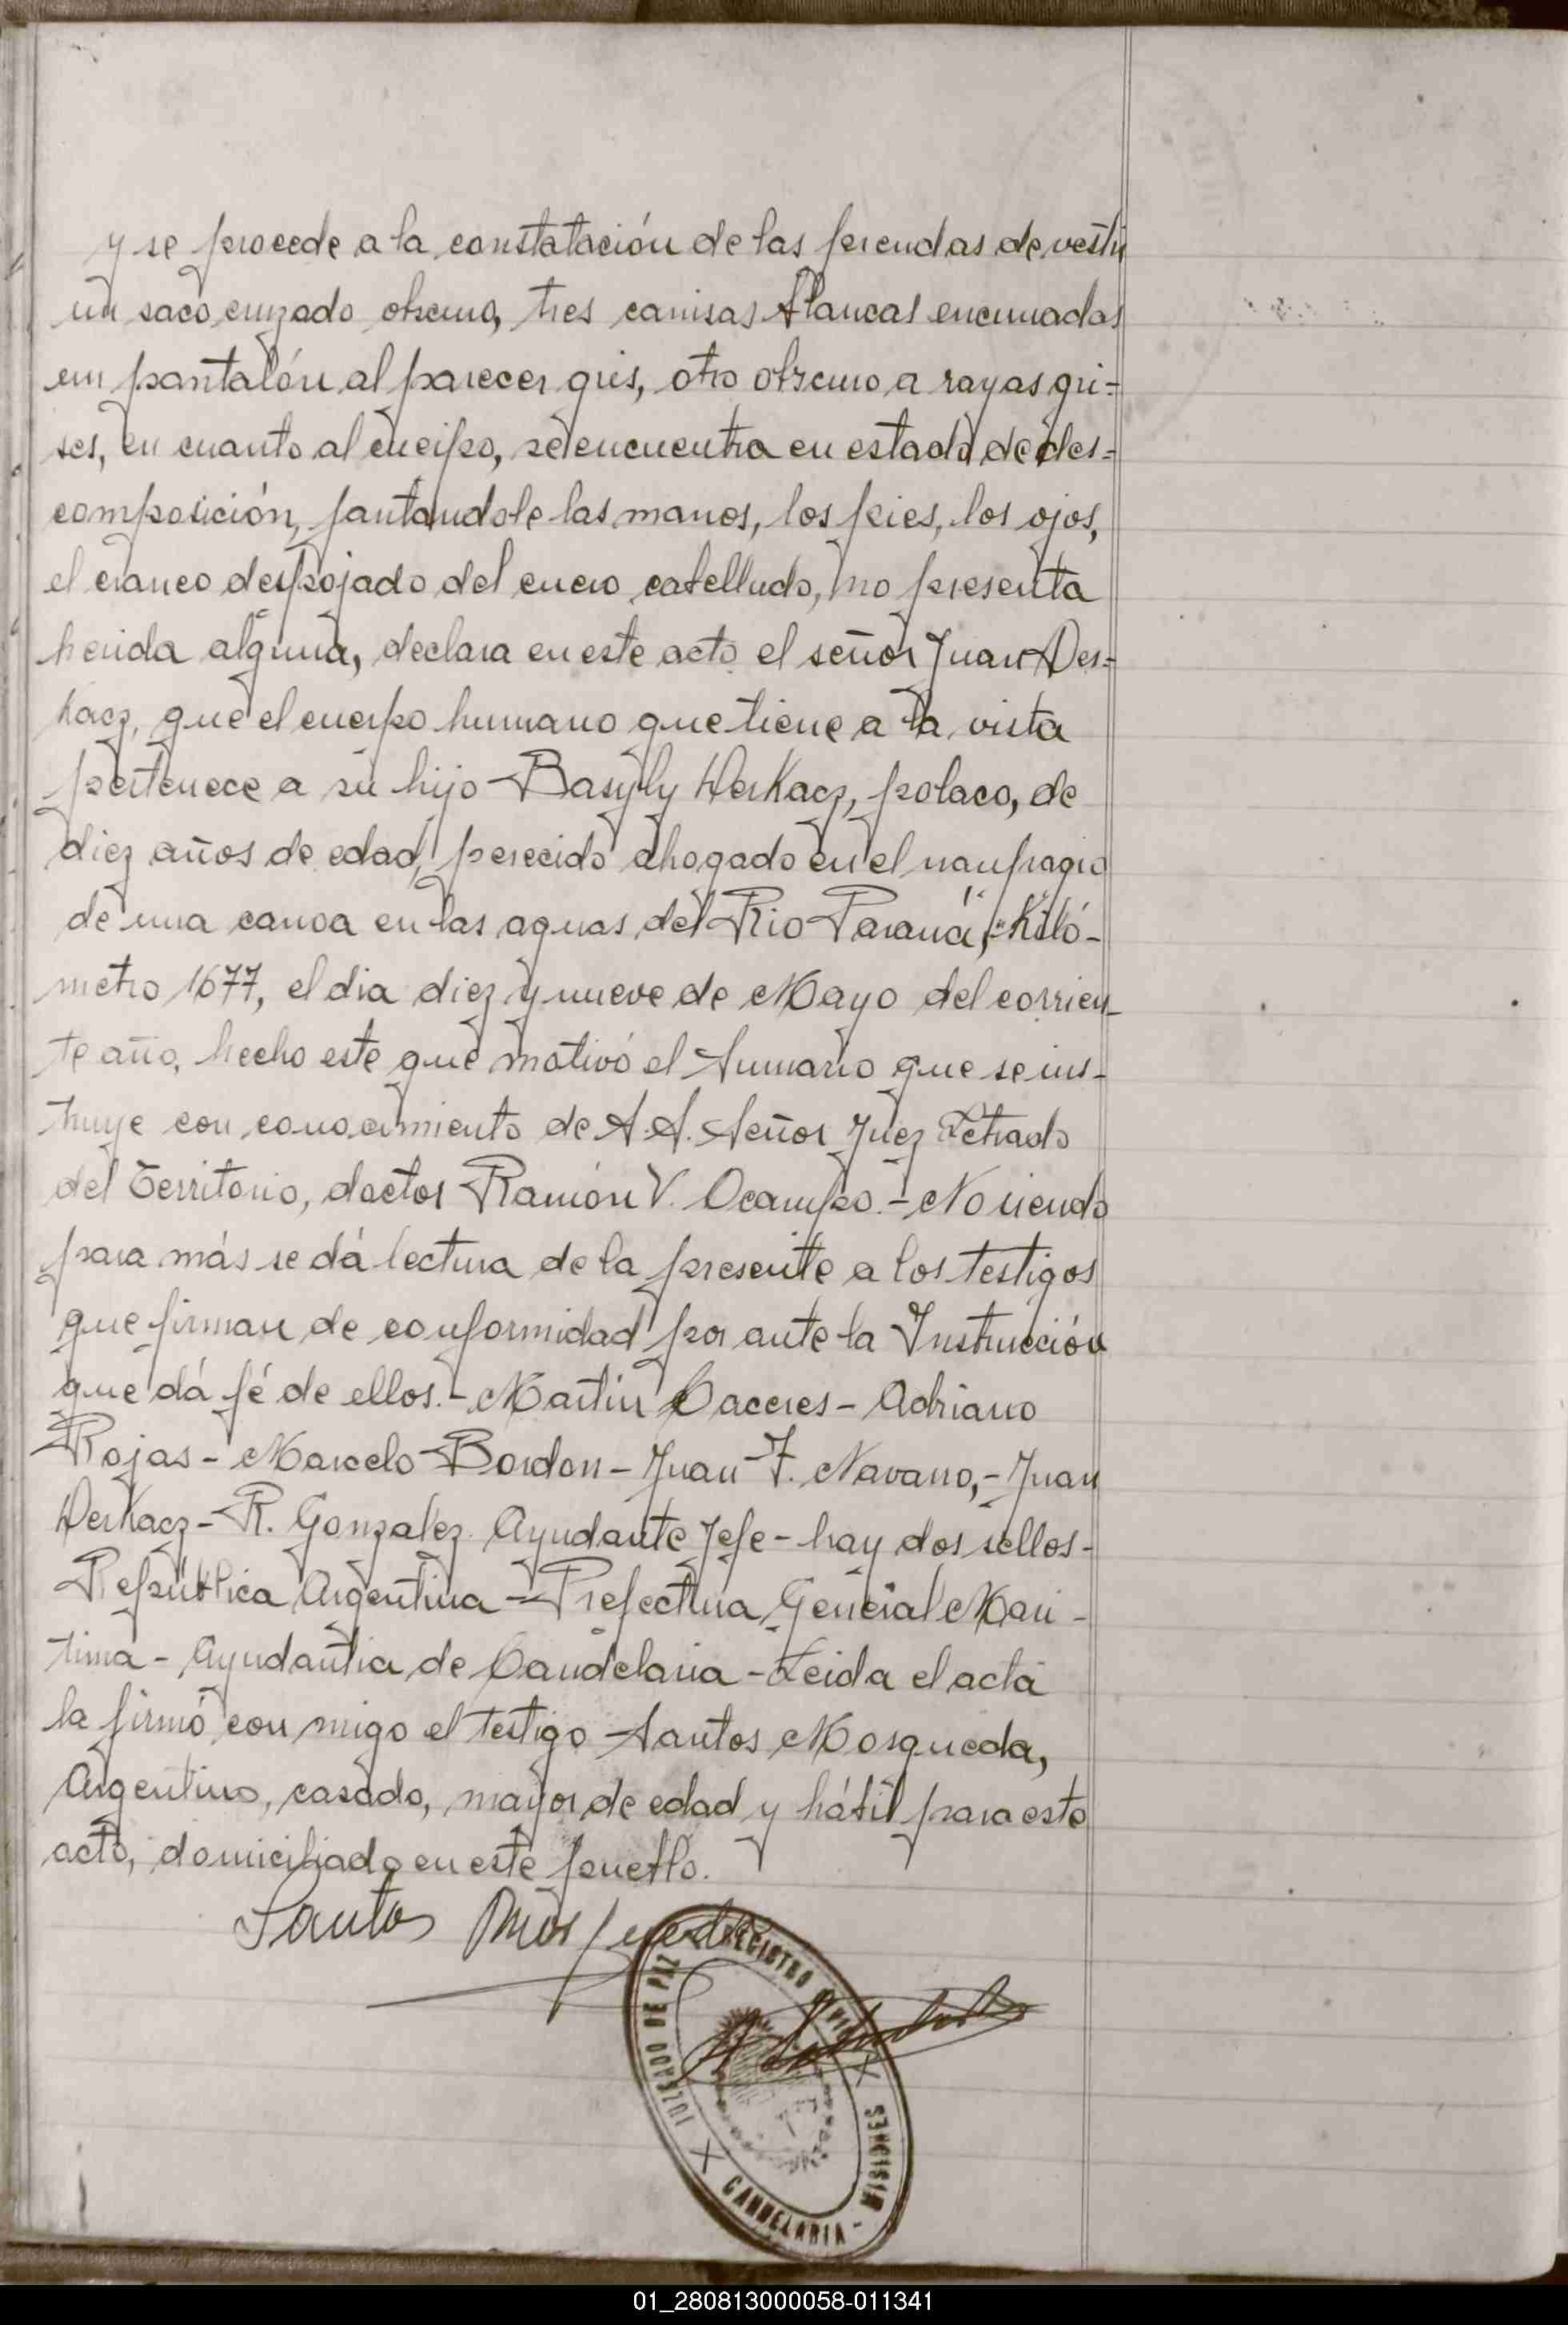 y se procede a la constatación de las prendas de vestir
un saco cruzado obscuro, tres camisas blancas encimadas
un pantalón al parecer gris, otro obscuro a rayas gri=
ses, en cuanto al cueipo, se encuentra en estado de des=
composición, fantandole las manos, los pies, los ojos,
el craneo despojado del cuero cabelludo, no presenta
herida alguna, declara en este acto el señor Juan Der=
kacz, que el cuerpo humano que tiene a la vista
pertenece a su hijo Basyly Derkacz, polaco, de
diez años de edad, perecido ahogado en el naufragio
de una canoa en las aguas del Rio Paraná, "Kiló-
metro 1677, el dia diez y nueve de Mayo del corrien-
te año, hecho este que motivó el Sumario que se ins-
truye con conocimiento de S.S. Señor Juez Letrado
del Territorio, doctor Ramón V. Ocampo.- No siendo
para más se dá lectura de la presente a los testigos
que firman de conformidad por ante la Instrucción
que dá fé de ellos.- Martin Caceres - Adriano
Rojas - Marcelo Bordon - Juan F. Navarro, - Juan
Derkacz - R. Gonzalez Ayudante Jefe - hay dos sellos -
República Argentina - Prefectura General Mari -
tima - Ayudantia de Candelaria - Leida el acta
la firmó con migo el testigo Santos Mosqueda,
Argentino, casado, mayor de edad y hábil para este
acto, domiciliado en este pueblo.
Santos Mosqueda
REGISTRO CIVIL
JUZGADO DE PAZ
MISIONES
CANDELARIA -
01_280813000058-011341